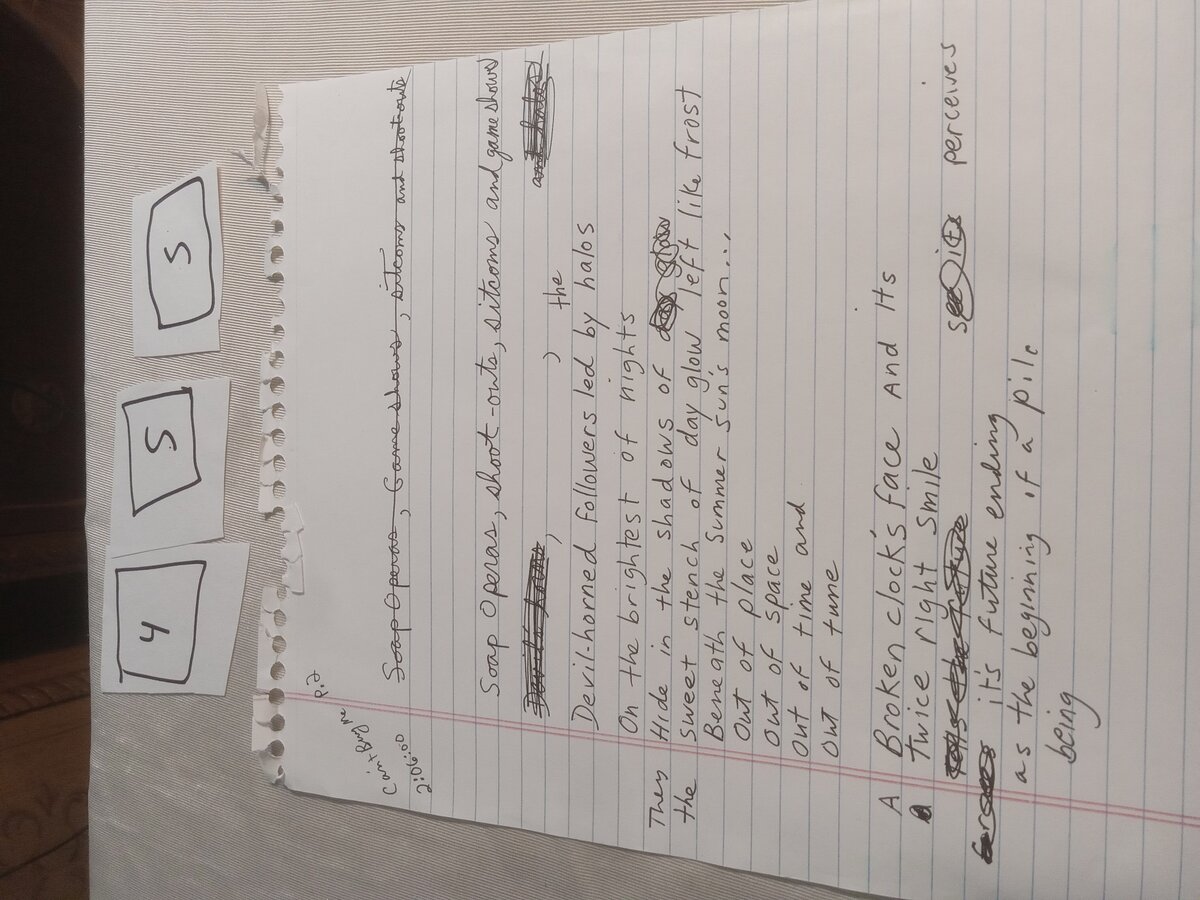 4 5 5
Can't Bring Me p.2
2:06:00
Soap Operas, Game shows, sitcoms and shoot-outs
Soap Operas, shoot-outs, sitcoms and game shows
, , the
Devil-horned followers led by halos
On the brightest of nights
They Hide in the shadows of
the sweet stench of day glow left like frost
Beneath the Summer Sun's moon...
Out of place
Out of space
Out of time and
Out of tune
A Broken clock's face And Its
twice right smile
perceives
it's future ending
as the beginning of a pile
being